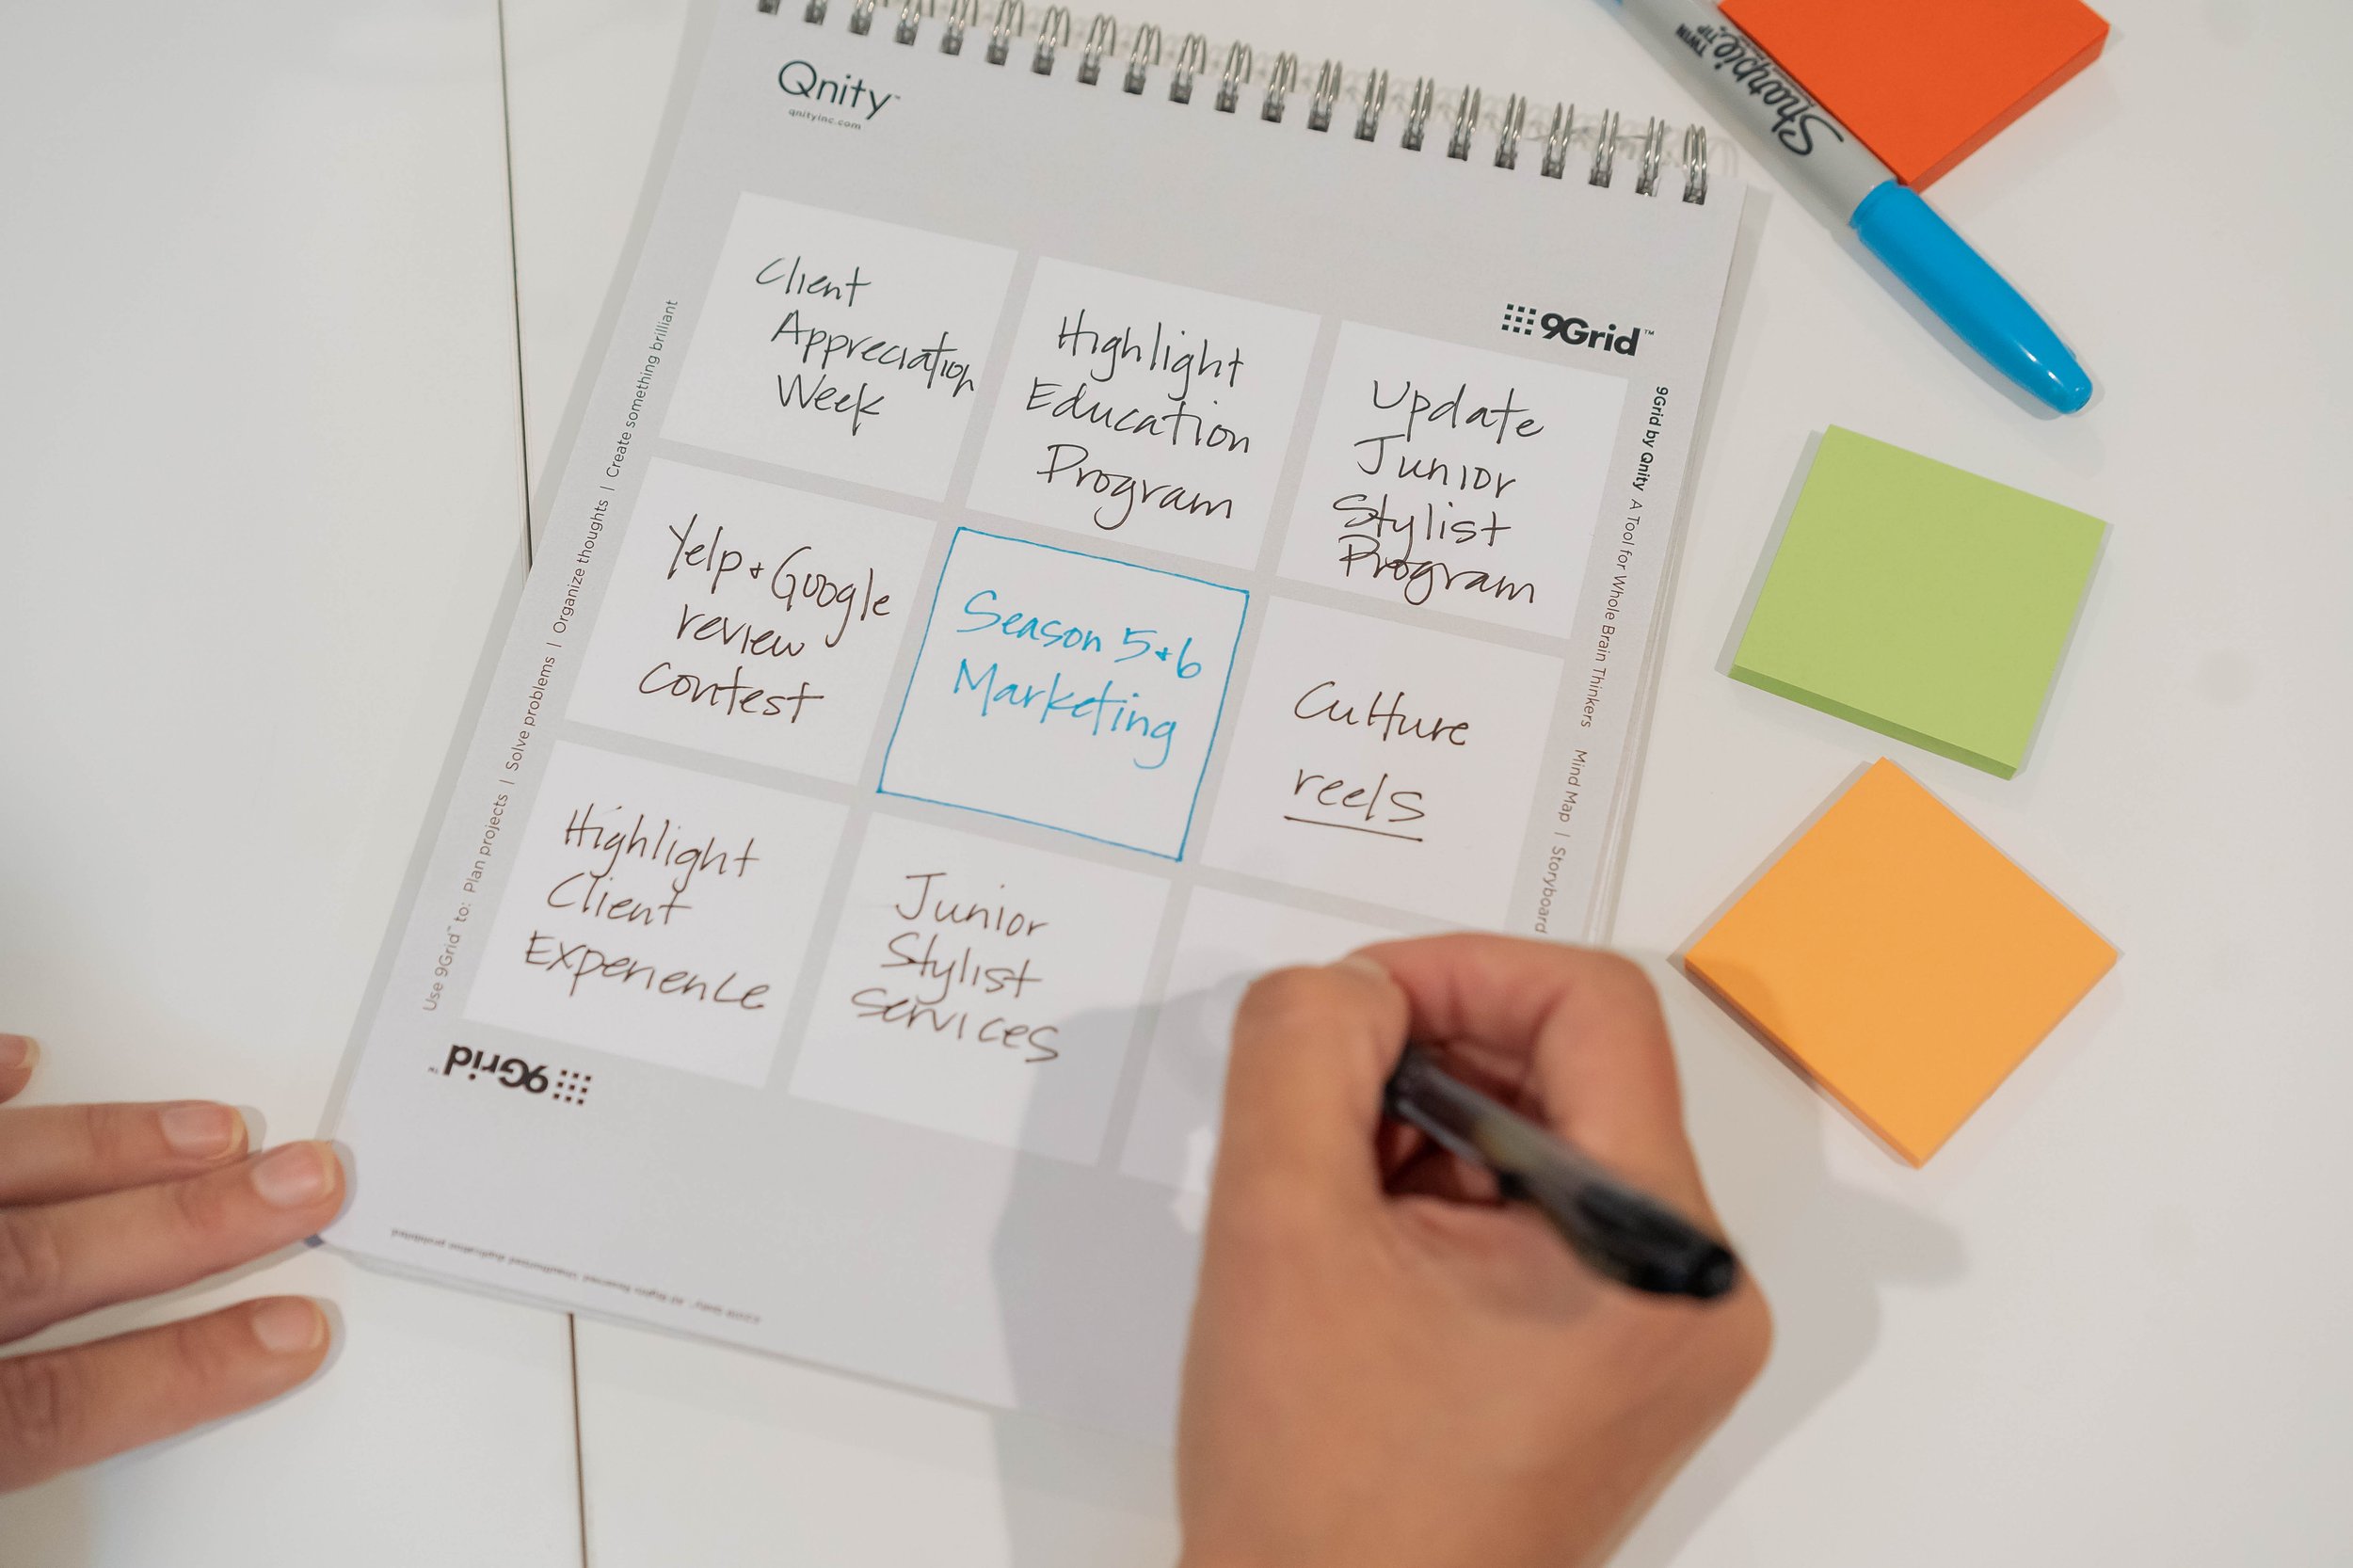 Qnity™
qnityinc.com
9Grid™
Client
Appreciation
Week
Highlight
Education
Program
Update
Junior
Stylist
Program
Yelp + Google
review
contest
Season 5+6
Marketing
Culture
reels
Highlight
Client
Experience
Junior
Stylist
services
Use 9Grid™ to: Plan projects | Solve problems | Organize thoughts | Create something brilliant
9Grid by Qnity A Tool for Whole Brain Thinkers Mind Map | Storyboard
9Grid™
Sharpie
TWIN TIP